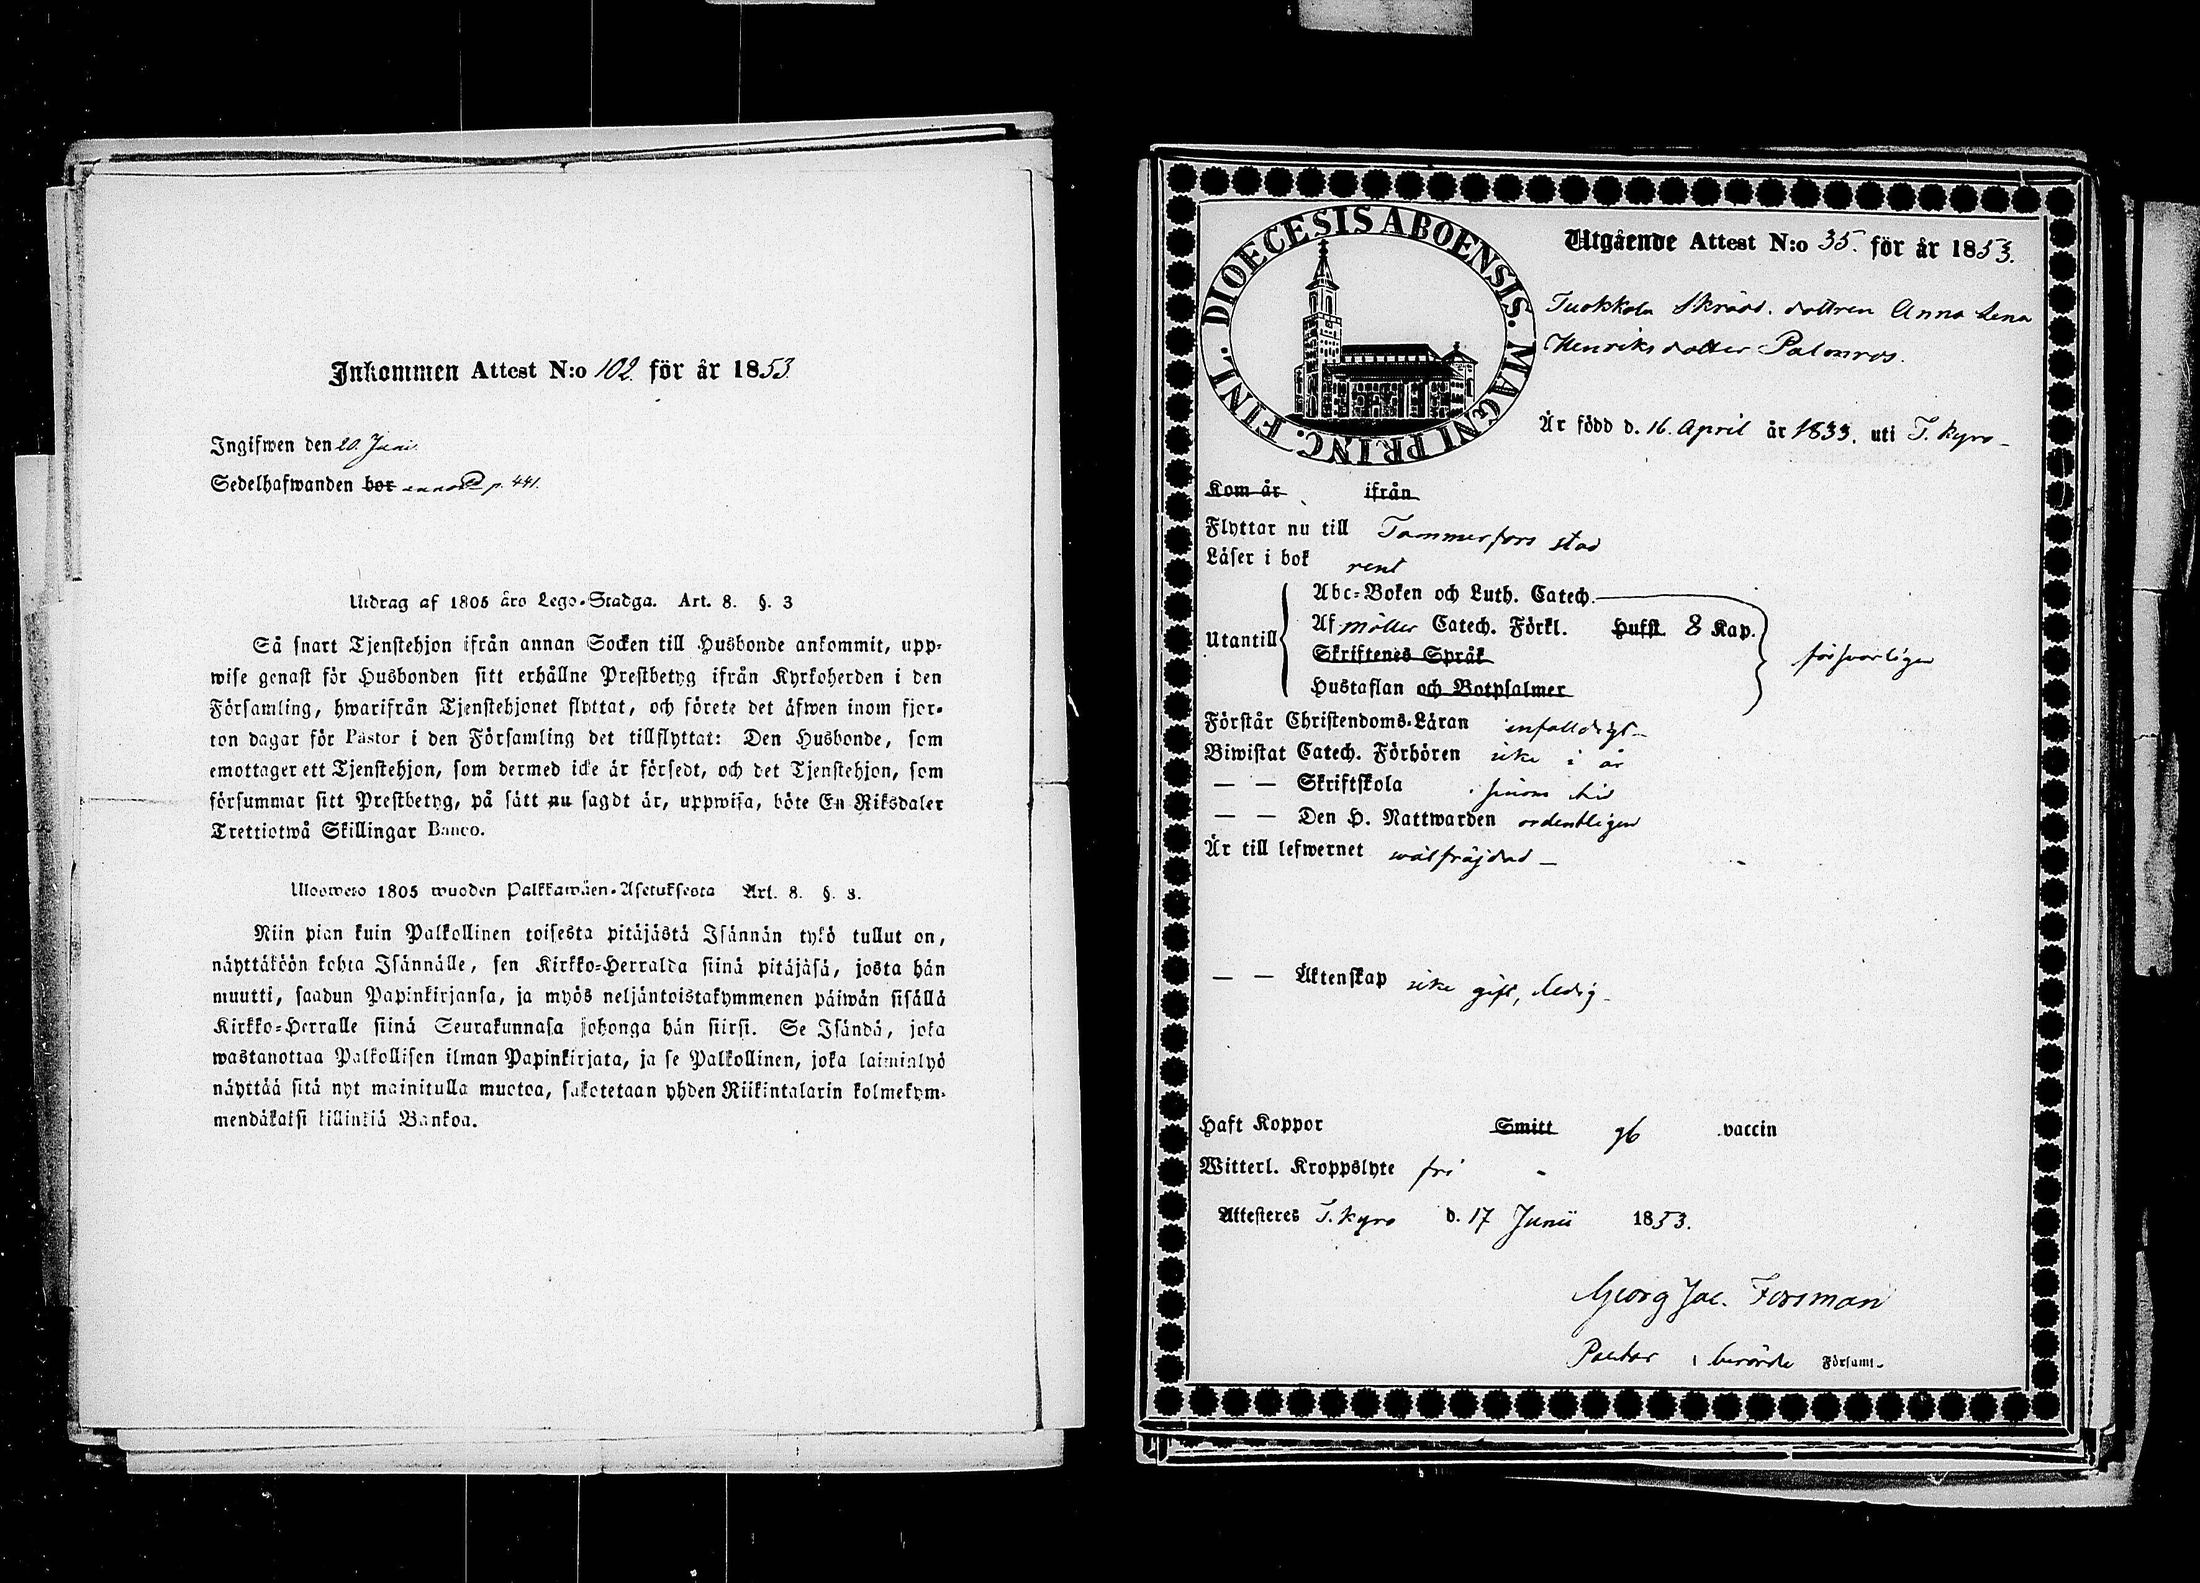 Inkommen Attest N:o 102. för år 1853
Ingifwen den 20. Juni
Sedelhafwanden bor p. 441.
Utdrag af 1805 års Lego-Stadga. Art. 8. §. 3
Så snart Tjenstehjon ifrån annan Socken till Husbonde ankommit, upp-
wise genast för Husbonden sitt erhållne Prestbetyg ifrån Kyrkoherden i den
Församling, hwarifrån Tjenstehjonet flyttat, och förete det äfwen inom fjor-
ton dagar för Pastor i den Församling det tillflyttat: Den Husbonde, som
emottager ett Tjenstehjon, som dermed icke är försedt, och det Tjenstehjon, som
försummar sitt Prestbetyg, på sätt nu sagdt är, uppwisa, böte En Riksdaler
Trettiotwå Skillingar Banco.
Ulosweto 1805 wuoden Palkkawäen-Asetuksesta Art. 8. §. 3.
Niin pian kuin Palkollinen toisesta pitäjästä Isännän tykö tullut on,
näyttäköön kohta Isännälle, sen Kirkko-Herralda siinä pitäjäsä, josta hän
muutti, saadun Papinkirjansa, ja myös neljäntoistakymmenen päiwän sisällä
Kirkko-Herralle siinä Seurakunnasa johonga hän siirsi. Se Isändä, joka
wastanottaa Palkollisen ilman Papinkirjata, ja se Palkollinen, joka laiminlyö
näyttää sitä nyt mainitulla muotoa, sakotetaan yhden Riikintalarin kolmekym-
mendäkaksi killinkiä Bankoa.
DIOECESIS ABOENSIS. MAGNI PRINC. FINL.
Utgående Attest N:o 35. för år 1853.
Tuokkola Skrädd. dottren Anna Lena
Henriksdotter Palmros.
Är född d. 16. April år 1833. uti T. Kyro
Kom år ifrån
Flyttar nu till Tammerfors stad
Läser i bok rent
Abc-Boken och Luth. Catech.
Utantill Af Möller Catech. Förkl. Hufst. 8 Kap. försvarligen
Skriftenes Språk
Hustaflan och Botpsalmer
Förstår Christendoms-Läran enfaldigt
Biwistat Catech. Förhören icke i år
— — Skriftskola sinom tid
— — Den H. Nattwarden ordentligen
Är till lefwernet wälfräjdad —
— — Äktenskap icke gift, ledig
Haft Koppor Smitt gb vaccin
Witterl. Kroppslyte fri
Attesteres T. Kyro d. 17 Junii 1853.
Georg Jac. Forsman
Pastor i berörde Församl.